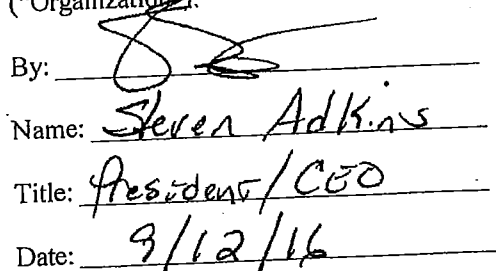 ("Organization").
By:
Name: Steven Adkins
Title: President/CEO
Date: 9/12/16